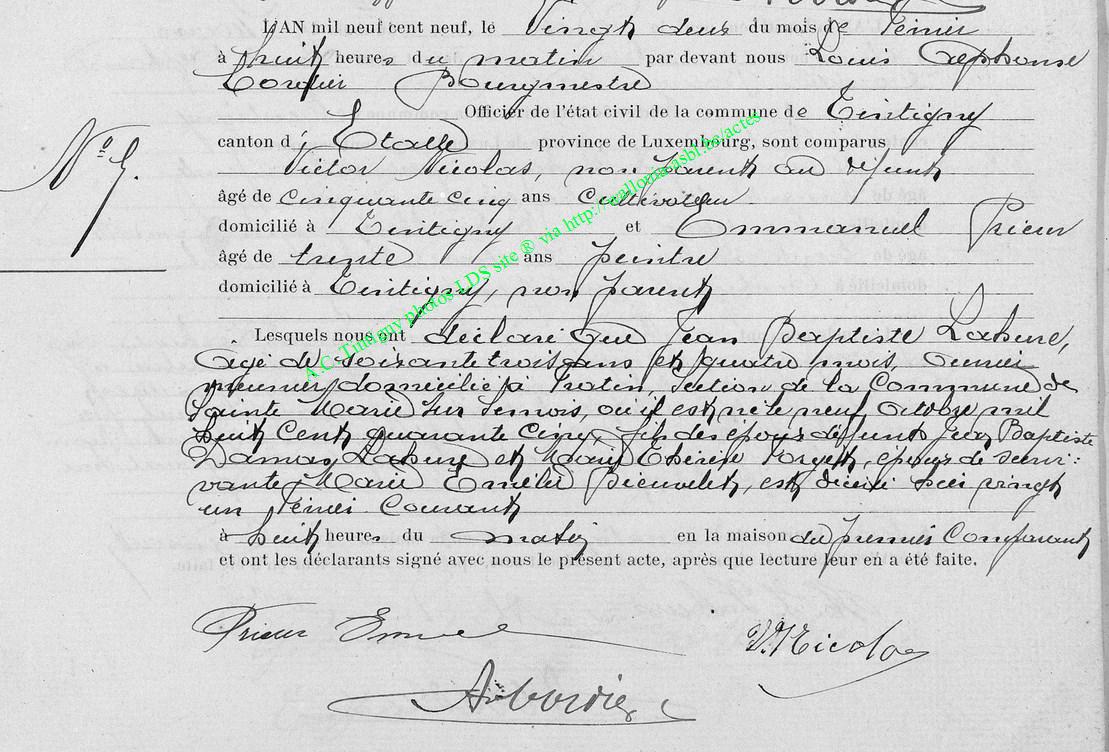 L'AN mil neuf cent neuf, le Vingt deux du mois de Février
à huit heures du matin par devant nous Louis Alphonse
Cordier Bourgmestre
Officier de l'état civil de la commune de Tintigny
canton d' Etalle province de Luxembourg, sont comparus
Victor Nicolas, non parent au défunt
âgé de cinquante cinq ans Cultivateur
domicilié à Tintigny et Emmanuel Prieur
âgé de trente ans peintre
domicilié à Tintigny, non parent
Lesquels nous ont déclaré que Jean Baptiste Lahure,
âgé de soixante trois ans et quatre mois, ouvrier
meunier domicilié à Fratin, section de la Commune de
Sainte Marie sur Semois, où il est né le neuf Octobre mil
huit cent quarante cinq, fils des époux défunts Jean Baptiste
Damas Lahure et Marie Thérèse Forget, époux de survi-
vante Marie Emélie Bieuvelet, est décédé hier vingt
un Février Courant
à huit heures du matin en la maison du premier Comparant
et ont les déclarants signé avec nous le présent acte, après que lecture leur en a été faite.
N° 5.
Prieur Emm
V. Nicolas
A. Cordier
A.C. Tintigny photos LDS site ® via http://wallonia-asbl.be/actes